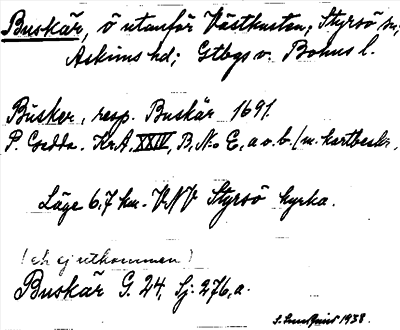 Buskär, ö utanför Västkusten, Styrsö sn,
Askims hd; Gtbgs o. Bohus l.
Büsker, resp. Buskär 1691.
P. Gedda. Kr.A. XXIV, B, No E, a o. b. (m. kartbeskr.
Läge 6,7 km. VNV Styrsö kyrka.
(ch ej utkommen)
Buskär G. 24, Sj: 276, a.
1938.